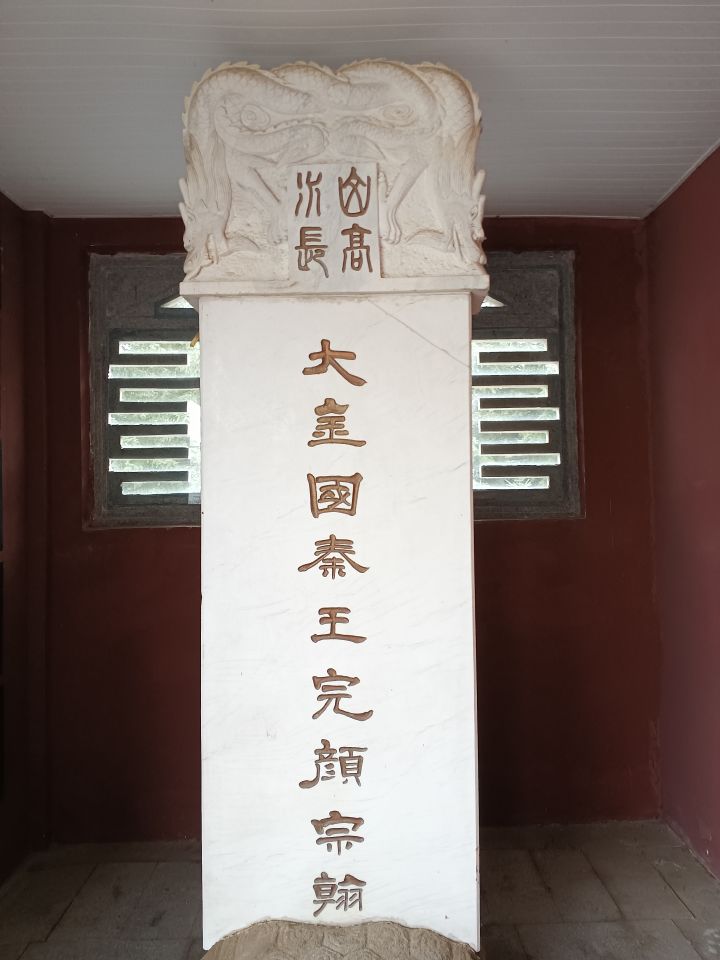 山高
水長
大金國秦王完顔宗翰